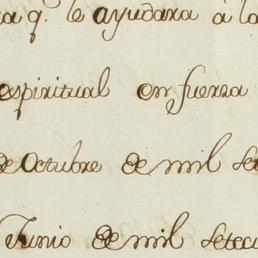 a q.e le ayudara à la
espiritual en fuerza
de Octubre de mil se
Junio de mil seteci